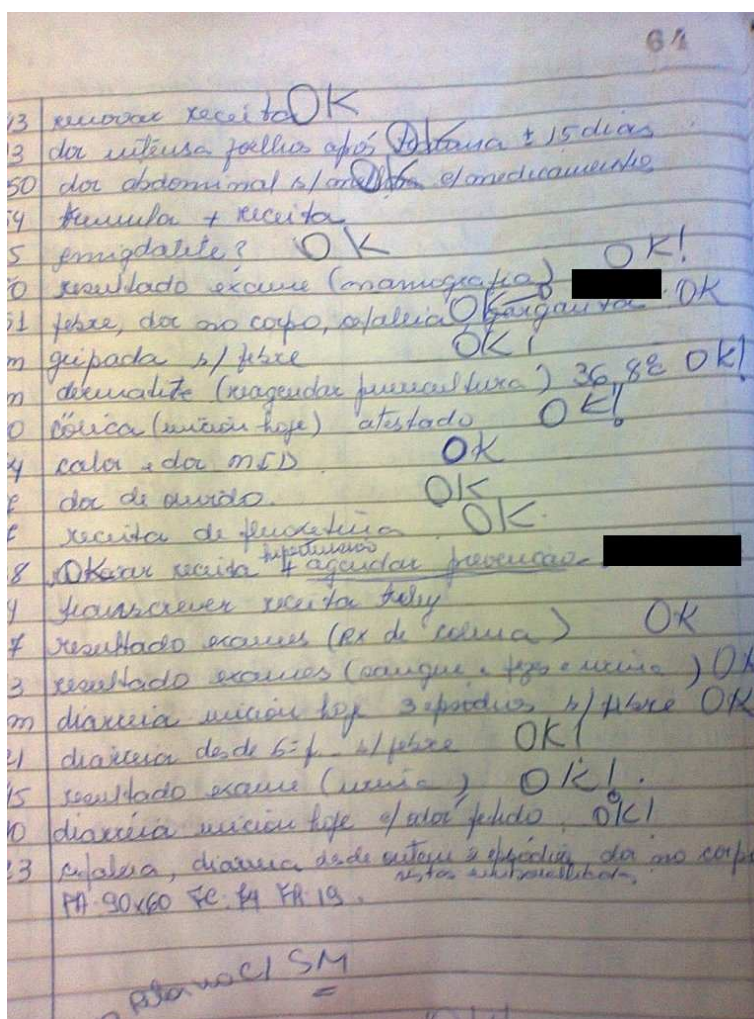 64
13 renovar receita OK
3 dor intensa joelho após OK ± 15 dias
50 dor abdominal s/ OK c/ medicamento
4 + receita
5 amigdalite? OK
0 resultado exame (mamografia) OK!
51 febre, dor no corpo, cefaleia OK garganta. OK
m gripada s/ febre OK!
m dermatite (reagendar puericultura) 36,8º OK!
0 cólica (iniciou hoje) atestado OK!
4 calor e dor MID OK
dor de ouvido. OK
receita de fluoxetina OK.
8 OK receita hipertensão + agendar prevenção
4 transcrever receita
7 resultado exames (RX de coluna) OK
3 resultado exames (sangue e fezes e urina) OK
m diarreia iniciou hoje 3 episódios s/ febre OK
21 diarreia desde 6ª f. s/ febre OK!
15 resultado exame (urina) OK!.
0 diarreia iniciou hoje c/ odor fétido. OK!
23 cefaleia, diarreia desde ontem 2 episódios, dor no corpo
PA: 90x60 FC: 74 FR: 19.
SM